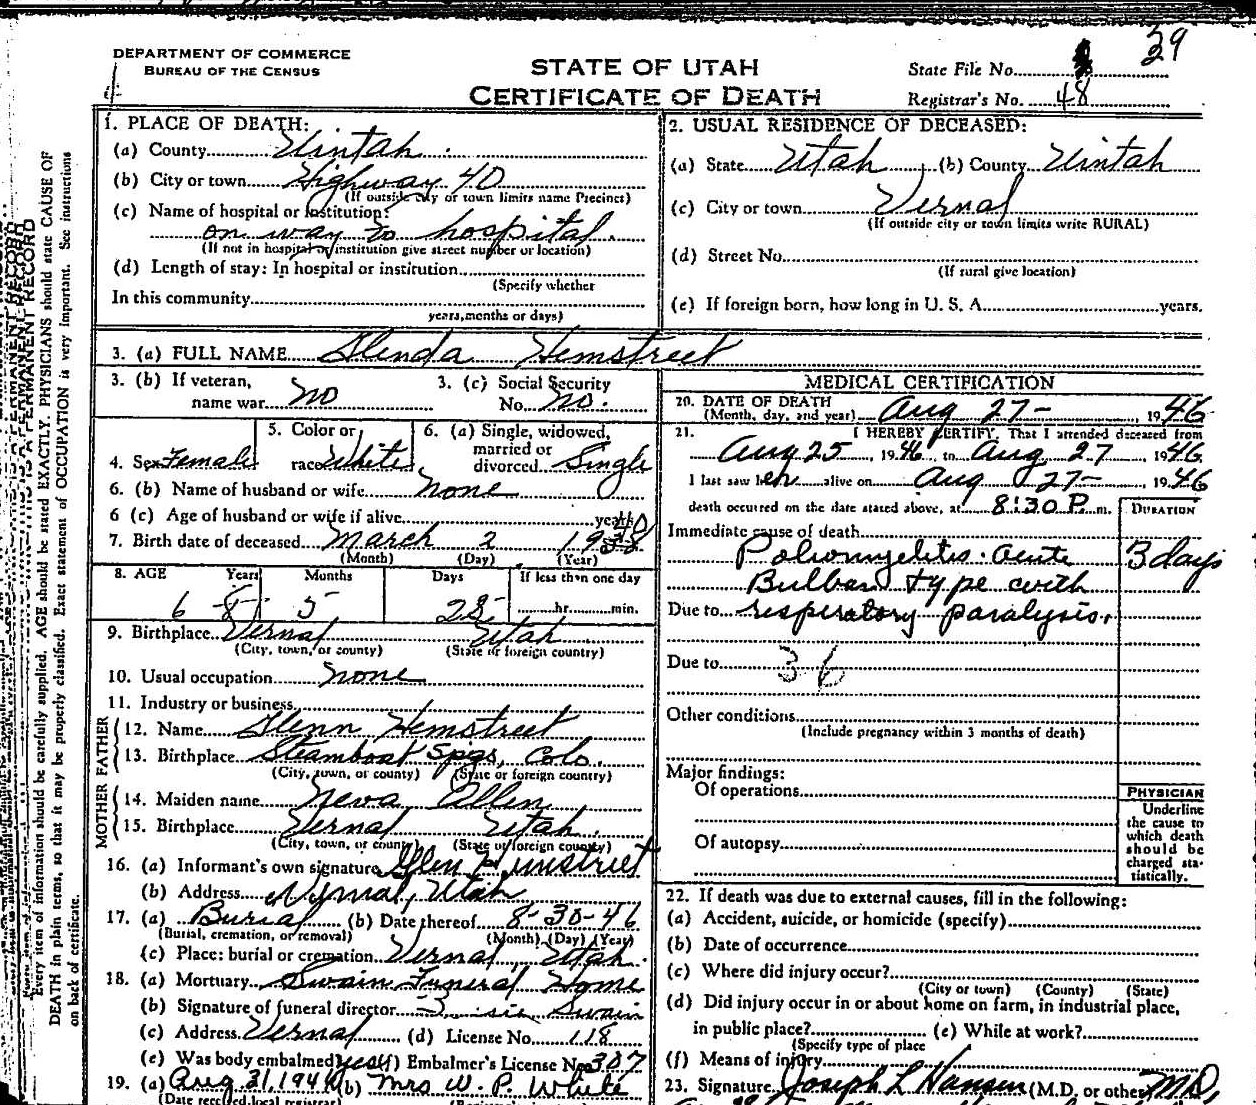 DEPARTMENT OF COMMERCE
BUREAU OF THE CENSUS
STATE OF UTAH
CERTIFICATE OF DEATH
State File No. 39
Registrar's No. 48
1. PLACE OF DEATH:
(a) County Uintah
(b) City or town Highway 40
(If outside city or town limits name Precinct)
(c) Name of hospital or institution:
on way to hospital.
(If not in hospital or institution give street number or location)
(d) Length of stay: In hospital or institution
(Specify whether
In this community
years, months or days)
2. USUAL RESIDENCE OF DECEASED:
(a) State Utah (b) County Uintah
(c) City or town Vernal
(If outside city or town limits write RURAL)
(d) Street No.
(If rural give location)
(e) If foreign born, how long in U. S. A. years.
3. (a) FULL NAME Glenda Hemstreet
3. (b) If veteran,
name war no
3. (c) Social Security
No. no.
4. Sex Female
5. Color or
race White
6. (a) Single, widowed,
married or
divorced Single
6. (b) Name of husband or wife none
6 (c) Age of husband or wife if alive years
7. Birth date of deceased March 2 19 40
(Month) (Day) (Year)
8. AGE Years Months Days If less than one day
6 5 25 hr. min.
9. Birthplace Vernal Utah
(City, town, or county) (State or foreign country)
10. Usual occupation none
11. Industry or business
FATHER
12. Name Glenn Hemstreet
13. Birthplace Steamboat Spgs, Colo.
(City, town, or county) (State or foreign country)
MOTHER
14. Maiden name Neva Allen
15. Birthplace Vernal Utah.
(City, town, or county) (State or foreign country)
16. (a) Informant's own signature Glen Hemstreet
(b) Address Vernal, Utah
17. (a) Burial (b) Date thereof 8-30-46
(Burial, cremation, or removal) (Month) (Day) (Year)
(c) Place: burial or cremation Vernal, Utah.
18. (a) Mortuary Swain Funeral Home
(b) Signature of funeral director Swain
(c) Address Vernal (d) License No. 118
(e) Was body embalmed yes (f) Embalmer's License No. 307
19. (a) Aug 31, 1946 (b) Mrs W. P. White
(Date received local registrar)
MEDICAL CERTIFICATION
20. DATE OF DEATH
(Month, day, and year) Aug 27-, 1946
21. I HEREBY CERTIFY, That I attended deceased from
Aug 25, 1946, to Aug. 27, 1946
I last saw her alive on Aug 27-, 1946
death occurred on the date stated above, at 8:30 P. m.
DURATION
Immediate cause of death
Poliomyelitis. Acute 3 days
Bulbar type with
Due to respiratory paralysis.
Due to 36
Other conditions
(Include pregnancy within 3 months of death)
Major findings:
Of operations
Of autopsy
PHYSICIAN
Underline
the cause to
which death
should be
charged sta-
tistically.
22. If death was due to external causes, fill in the following:
(a) Accident, suicide, or homicide (specify)
(b) Date of occurrence
(c) Where did injury occur?
(City or town) (County) (State)
(d) Did injury occur in or about home on farm, in industrial place,
in public place? (e) While at work?
(Specify type of place
(f) Means of injury
23. Signature Joseph L Hansen (M.D. or other) M.D.
PERMANENT RECORD
Every item of information should be carefully supplied. AGE should be stated EXACTLY. PHYSICIANS should state CAUSE OF
DEATH in plain terms, so that it may be properly classified. Exact statement of OCCUPATION is very important. See instructions
on back of certificate.